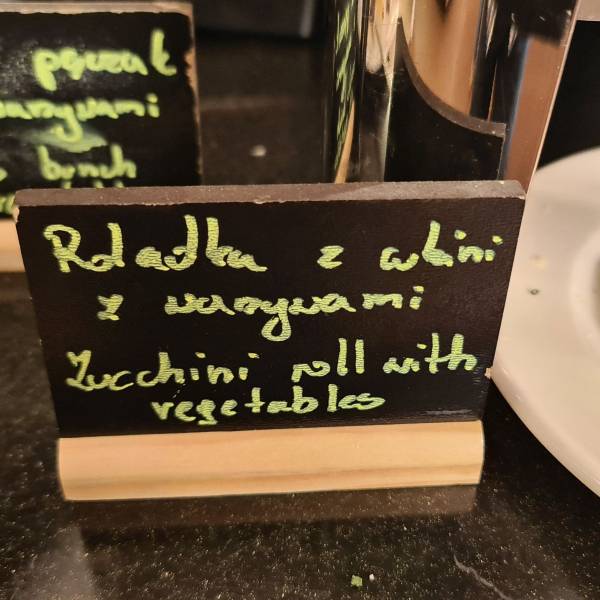 pęczak
warzywami
Roladka z cukini
z warzywami
Zucchini roll with
vegetables